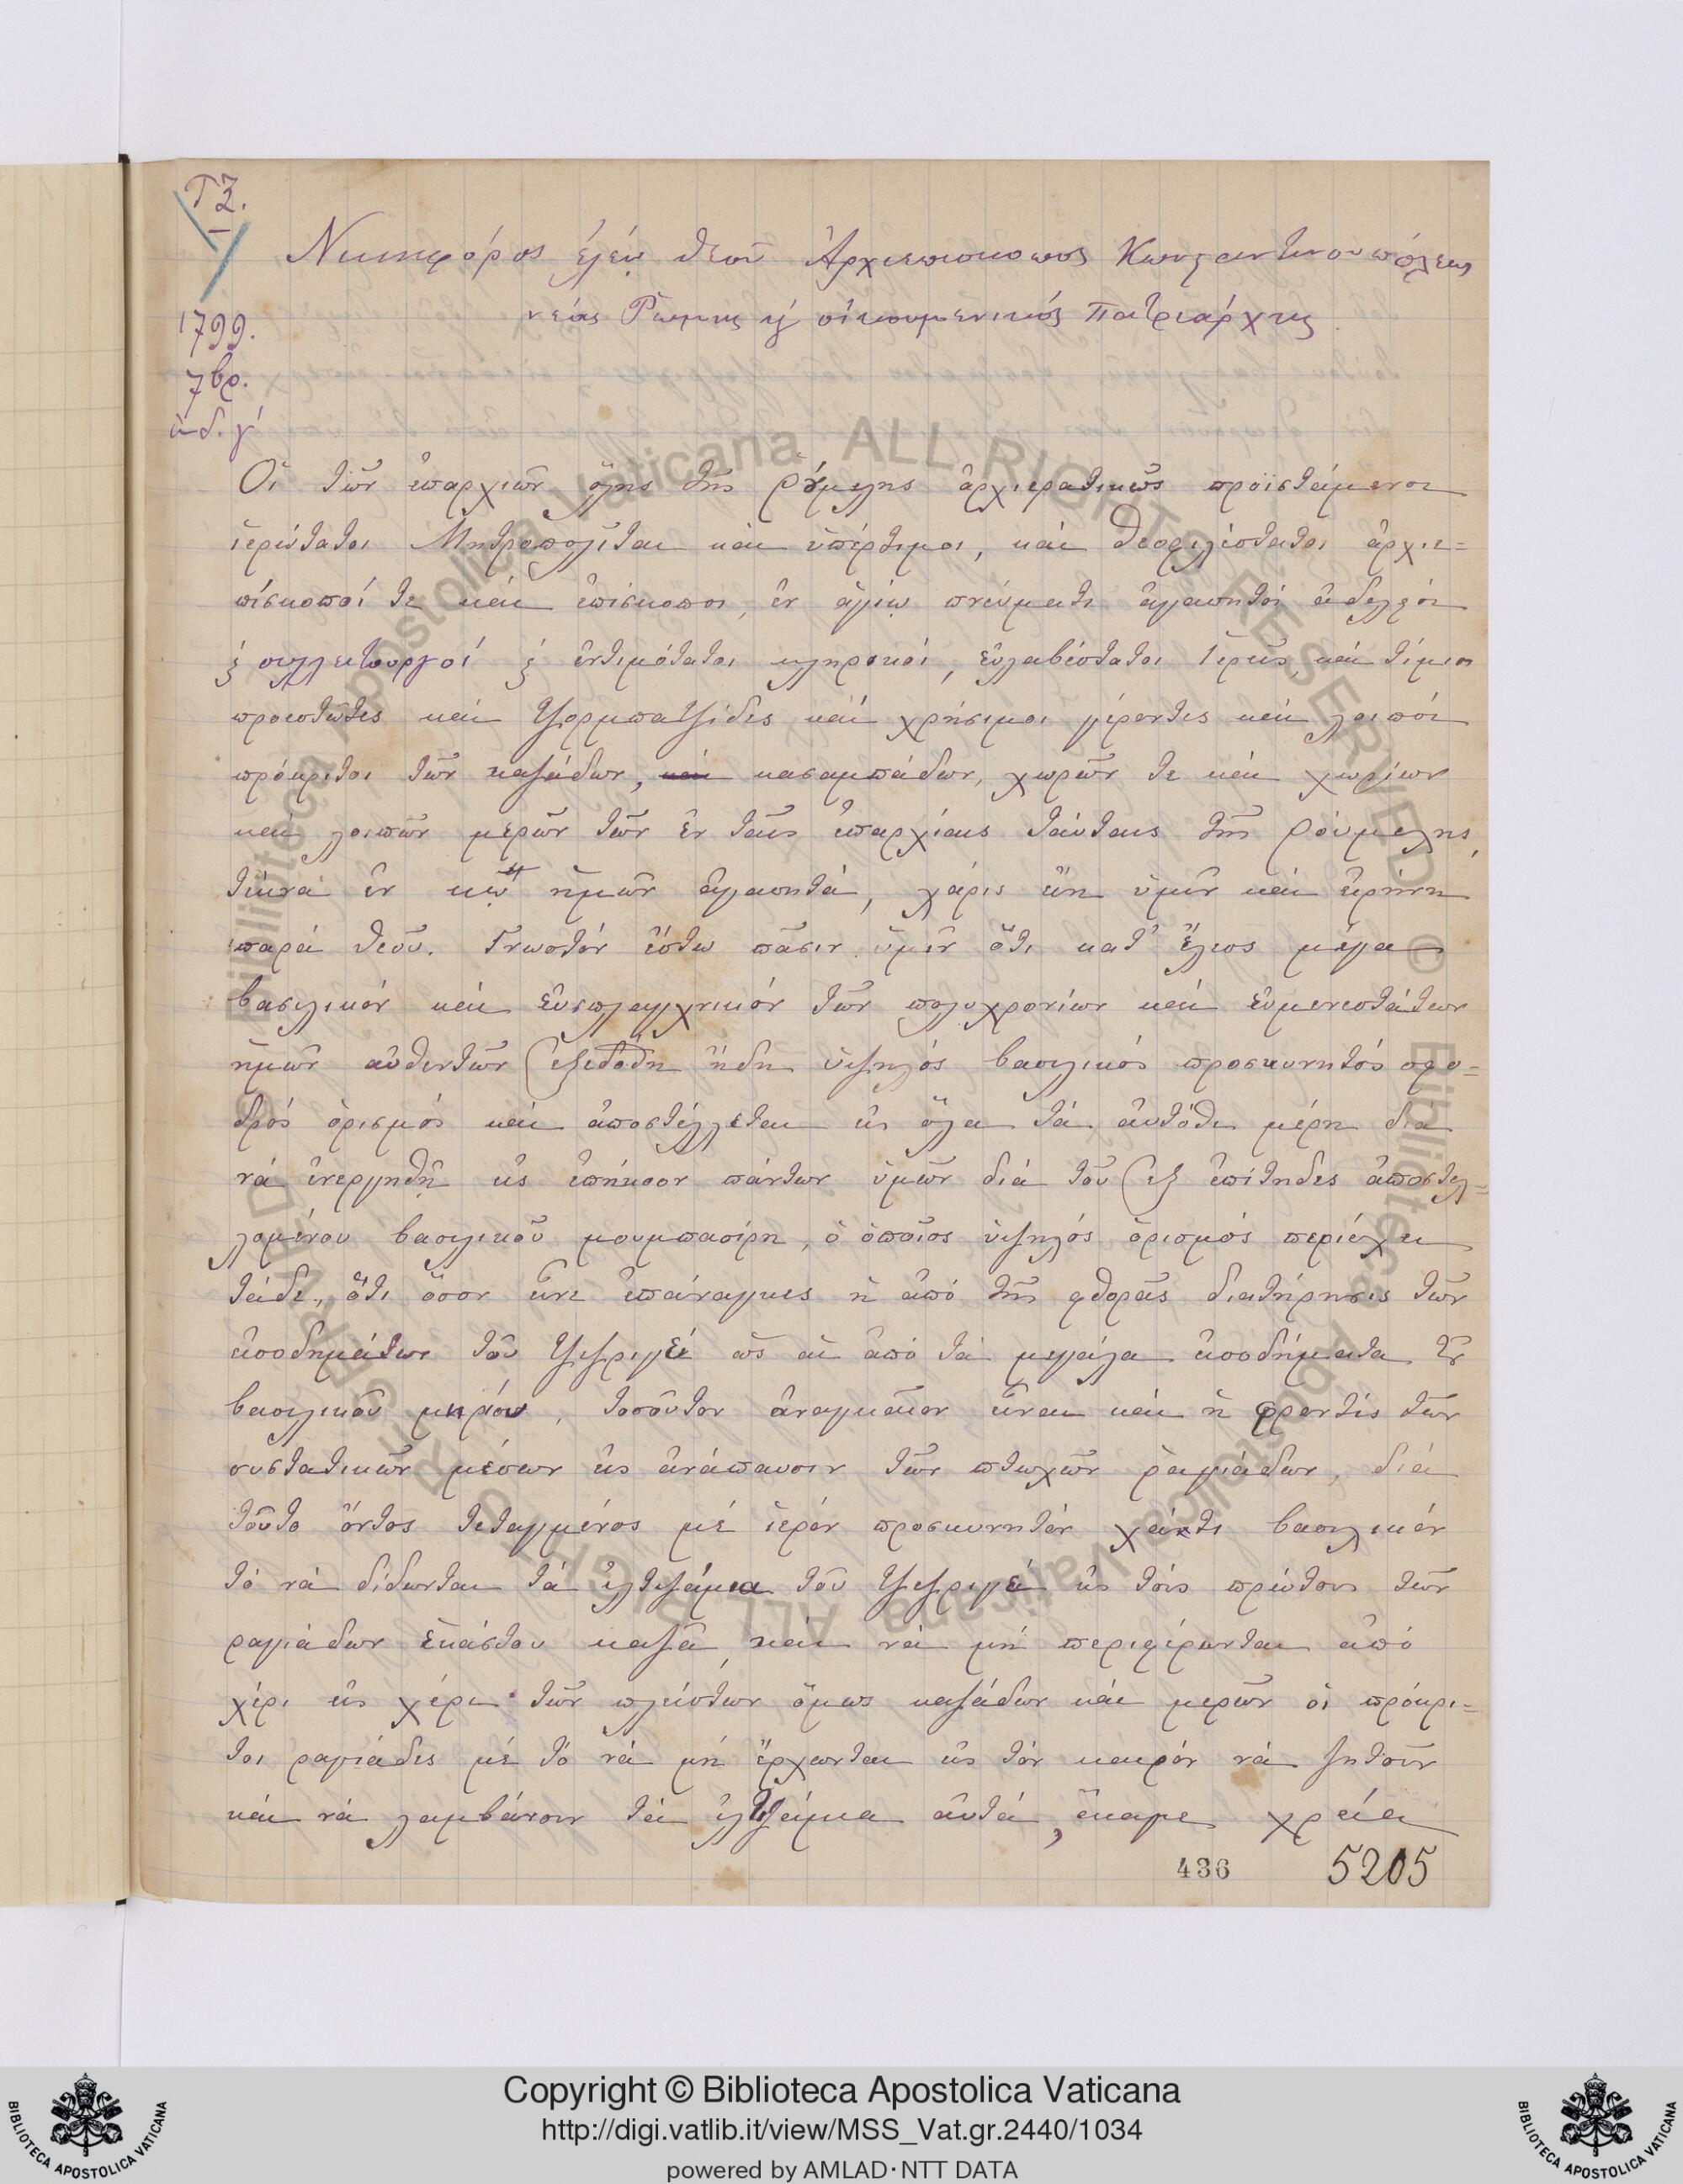 ΓΖ.
Νικηφόρος ἐλέῳ θεοῦ Ἀρχιεπίσκοπος Κωνσταντινουπόλεως
νέας Ῥώμης κ οἰκουμενικός Πατριάρχης
1799.
7βρ.
ἰνδ. γ΄
Οἱ τῶν ἐπαρχιῶν ὅλης τῆς Ρούμελης ἀρχιερατικῶς προϊστάμενοι
ἱερώτατοι Μητροπολῖται καὶ ὑπέρτιμοι, καὶ θεοφιλέστατοι ἀρχιε=
πίσκοποί τε καὶ ἐπίσκοποι, ἐν ἁγίῳ πνεύματι ἀγαπητοὶ ἀδελφοὶ
ξ συλλειτουργοί ξ ἐντιμότατοι κληρικοί, εὐλαβέστατοι ἱερεῖς καὶ τίμιοι
προεστῶτες καὶ τζορμπατζίδες καὶ χρήσιμοι γέροντες καὶ λοιποὶ
πρόκριτοι τῶν καζάδων, καὶ κασαμπάδων, χωρῶν τε καὶ χωρίων
καὶ λοιπῶν μερῶν τῶν ἐν ταῖς ἐπαρχίαις ταύταις τῆς Ρούμελης,
τέκνα ἐν κῳ ἡμῶν ἀγαπητά, χάρις εἴη ὑμῖν καὶ εἰρήνη
παρά θεοῦ. Γνωστόν ἔστω πᾶσιν ὑμῖν ὅτι κατ' ἔλεος μέγα
βασιλικόν καὶ εὐσπλαγχνικόν τῶν πολυχρονίων καὶ εὐμενεστάτων
ἡμῶν αὐθεντῶν (ἐξεδόθη ἤδη ὑψηλός βασιλικός προσκυνητός σφο=
δρός ὁρισμός καὶ ἀποστέλλεται εἰς ὅλα τά αὐτόθι μέρη διά
νά ἐνεργηθῇ εἰς ἐπήκοον πάντων ὑμῶν διά τοῦ (ἐξ ἐπίτηδες ἀποστελ=
λομένου βασιλικοῦ μουμπασίρη, ὁ ὁποῖος ὑψηλός ὁρισμός περιέχει
τάδε, ὅτι ὅσον εἶνε ἐπάναγκες ἡ ἀπό τῆς φθορᾶς διατήρησις τῶν
εἰσοδημάτων τοῦ τζιζριγέ ὡς αἱ ἀπό τά μεγάλα εἰσοδήματα τοῦ
βασιλικοῦ μηρίου, τοσοῦτον ἀναγκαῖον εἶναι καὶ ἡ φροντίς τῶν
συστατικῶν μέσων εἰς ἀνάπαυσιν τῶν πτωχῶν ῥαγιάδων, διά
τοῦτο ὄντος τεταγμένος μέ ἱερόν προσκυνητόν χάττι βασιλικόν
τό νά δίδωνται τά ἰλτιζάμια τοῦ τζιζριγέ εἰς τούς πρώτους τῶν
ραγιάδων ἑκάστου καζᾶ, καὶ νά μή περιφέρωνται ἀπό
χέρι εἰς χέρι· τῶν πλείστων ὅμως καζάδων καὶ μερῶν οἱ πρόκρι=
τοι ραγιάδες μέ τό νά μή ἔρχωνται εἰς τόν καιρόν νά ζητοῦν
καὶ νά λαμβάνουν τά ἰλτιζάμια αὐτά, ἔκαμε χρεία
436 5205
© Biblioteca Apostolica Vaticana ALL RIGHTS RESERVED
Copyright © Biblioteca Apostolica Vaticana
http://digi.vatlib.it/view/MSS_Vat.gr.2440/1034
powered by AMLAD·NTT DATA
BIBLIOTECA APOSTOLICA VATICANA
BIBLIOTECA APOSTOLICA VATICANA